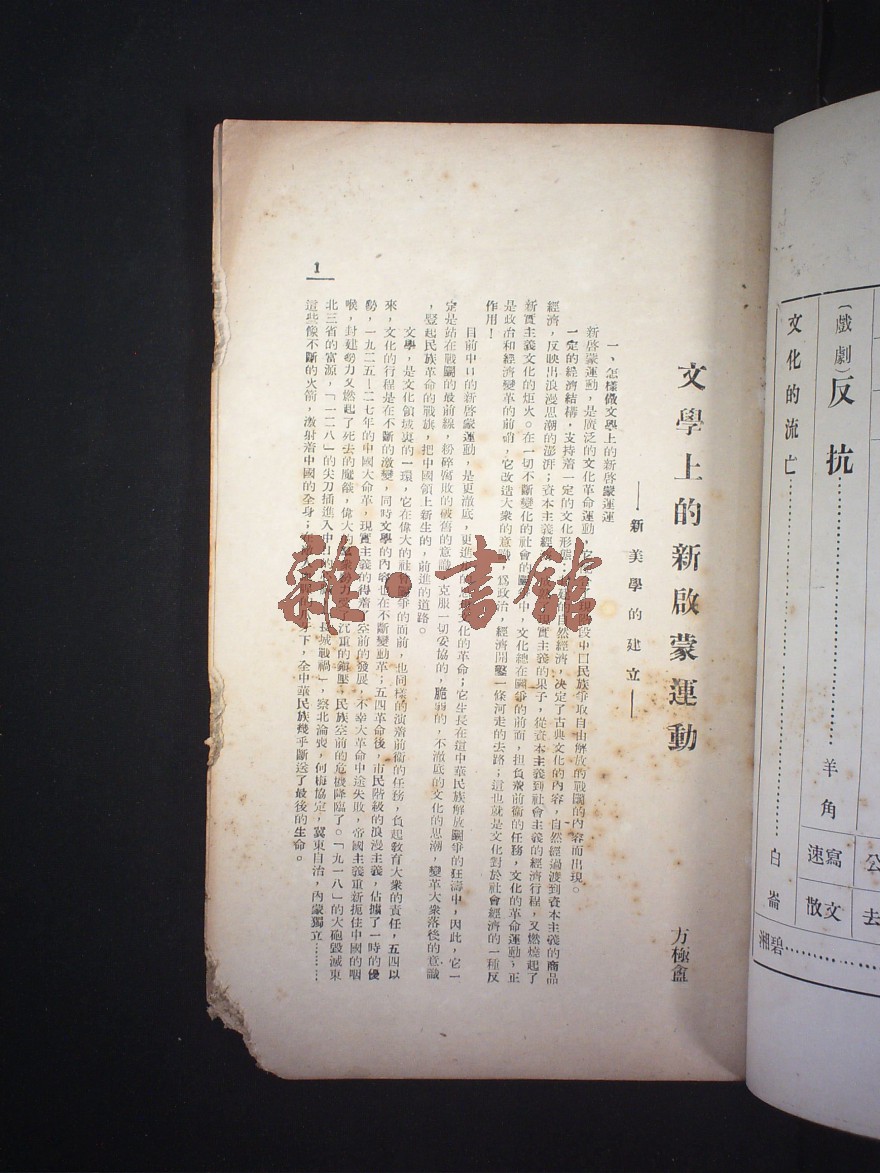 文學上的新啟蒙運動
——新美學的建立——
方極盦
一、怎樣做文學上的新啓蒙運運
新啓蒙運動，是廣泛的文化革命運動，它在現階段中囗民族爭取自由解放的戰鬭的內容而出現。
一定的經濟結構，支持着一定的文化形態；的自然經濟，决定了古典文化的內容，自然經過渡到資本主義的商品
經濟，反映出浪漫思潮的澎湃；資本主義經現實主義的果子，從資本主義到社會主義的經濟行程，又燃燒起了
新實主義文化的炬火。在一切不斷變化的社會的中，文化總在鬭爭的前面，担負着前衛的任務，文化的革命運動，正
是政治和經濟變革的前哨，它改造大衆的意識，爲政治，經濟開鑿一條河走的去路；這也就是文化對於社會經濟的一種反
作用！
目前中囗的新啓蒙運動，是更澈底，更進文化的革命；它生長在這中華民族解放鬭爭的狂濤中，因此，它一
定是站在戰鬭的最前線，粉碎腐敗的破舊的意識，克服一切妥協的，脆弱的，不澈底的文化的思潮，變革大衆落後的意識
，豎起民族革命的戰旗，把中國領上新生的，前進的道路。
文學，是文化領域裏的一環，它在偉大的社會鬭爭的面前，也同樣的演着前衛的任務，負起敎育大衆的責任，五四以
來，文化的行程是在不斷的激變，同時文學的內容也在不斷變動革；五四革命後，市民階級的浪漫主義，佔據了一時的優
勢，一九二五—二七年的中國大命革，現實主義的得着了空前的發展，不幸大革命中途失敗，帝國主義重新扼住中國的咽
喉，封建勢力又燃起了死去的魔燄，偉大的勢力受了沉重的鎮壓，民族空前的危機降臨了。「九一八」的大砲毀滅東
北三省的富源，「一二八」的尖刀插進入中囗的長城戰禍」，察北淪喪，何梅協定，冀東自治，內蒙獨立………
這些像不斷的火箭，激射着中國的全身；下，全中華民族幾乎斷送了最後的生命。
1
雜·書館
（戲劇）反抗……羊角
文化的流亡……白崙
速寫
散文
公
去
碧湘……